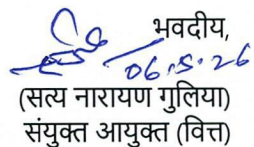 भवदीय,
06.5.26
(सत्य नारायण गुलिया)
संयुक्त आयुक्त (वित्त)